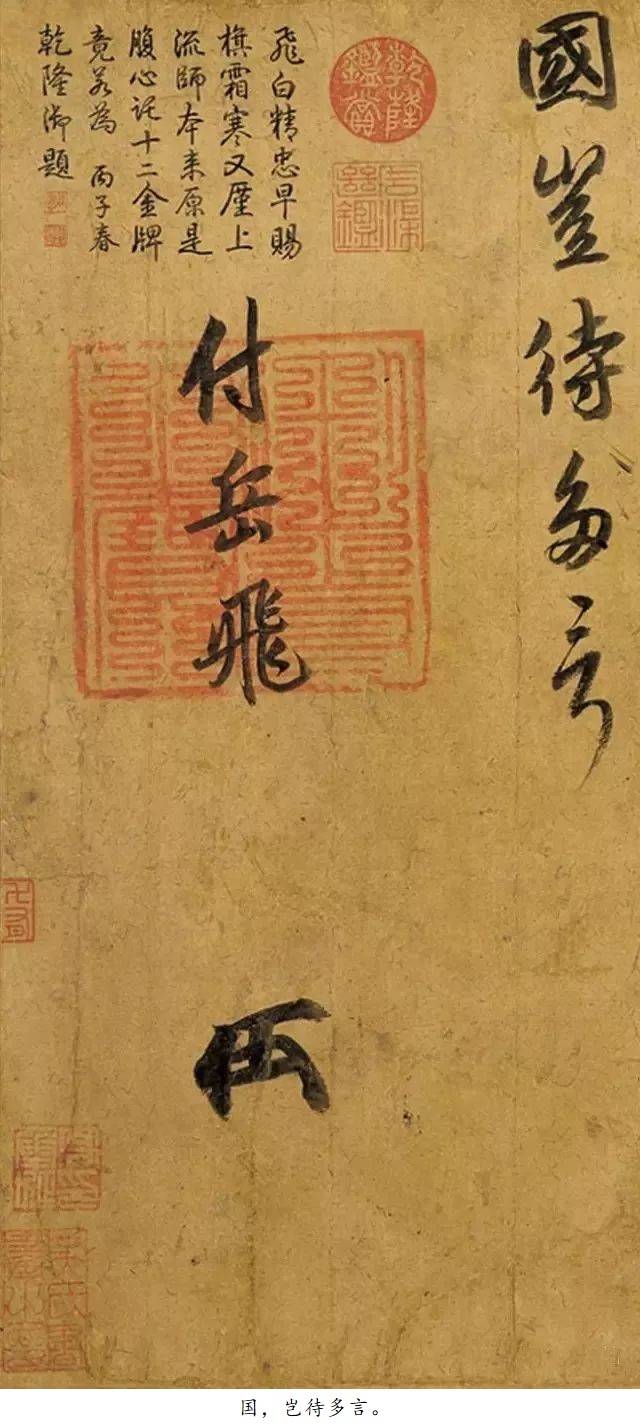 國豈待多言
乾隆鑑賞
飛白精忠早賜
旗霜寒又厪上
流師本来原是
腹心託十二金牌
竟若為 丙子春
乾隆御題
付岳飛
国，岂待多言。